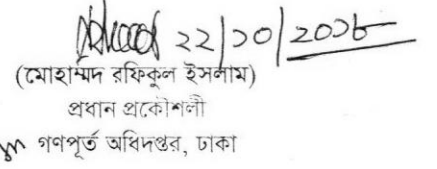 ২২/১০/২০১৮
(মোহাম্মদ রফিকুল ইসলাম)
প্রধান প্রকৌশলী
গণপূর্ত অধিদপ্তর, ঢাকা